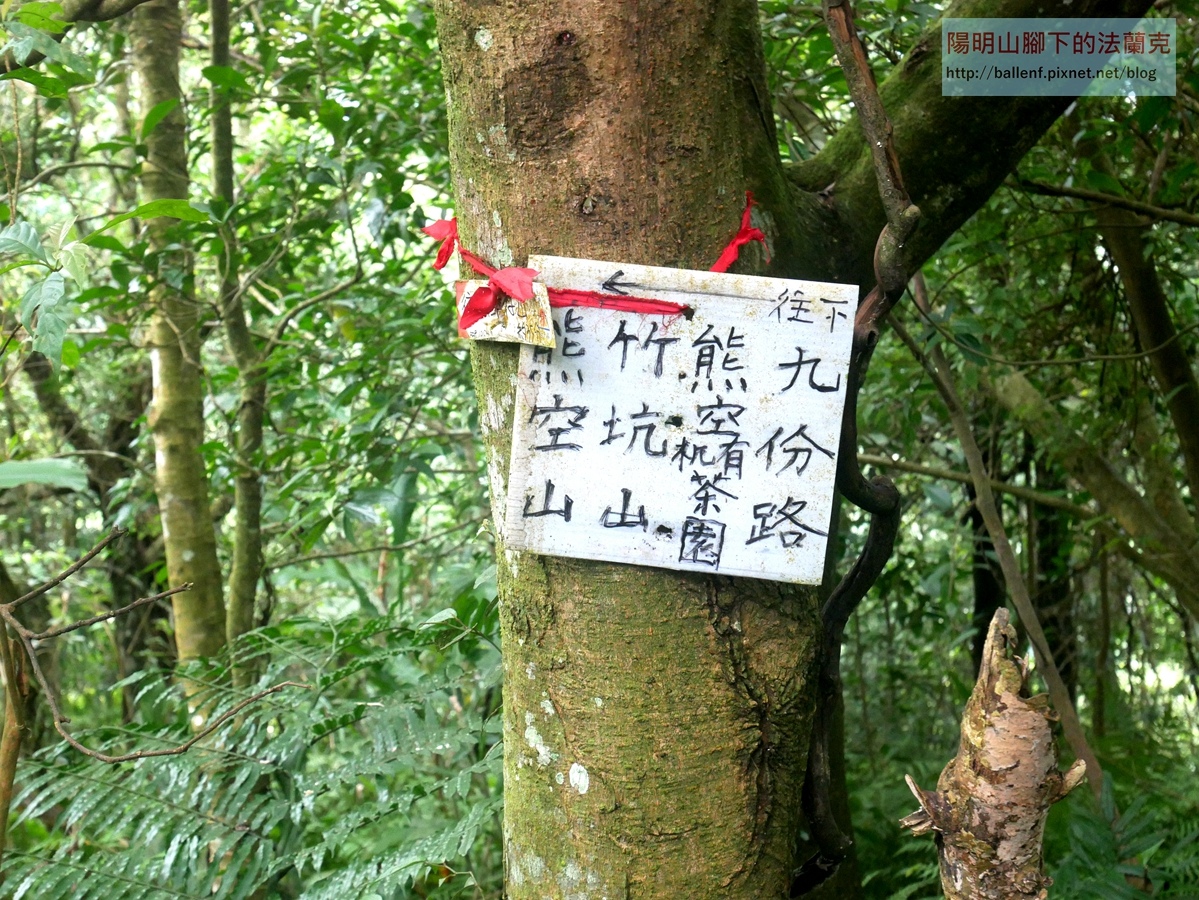 陽明山腳下的法蘭克
http://ballenf.pixnet.net/blog
往下
九份路
熊空有机茶園
竹坑山
熊空山